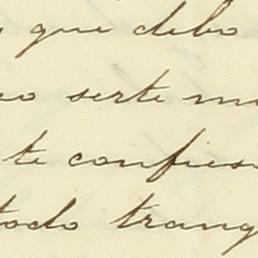 que debo
serte
te confies
todo tranq